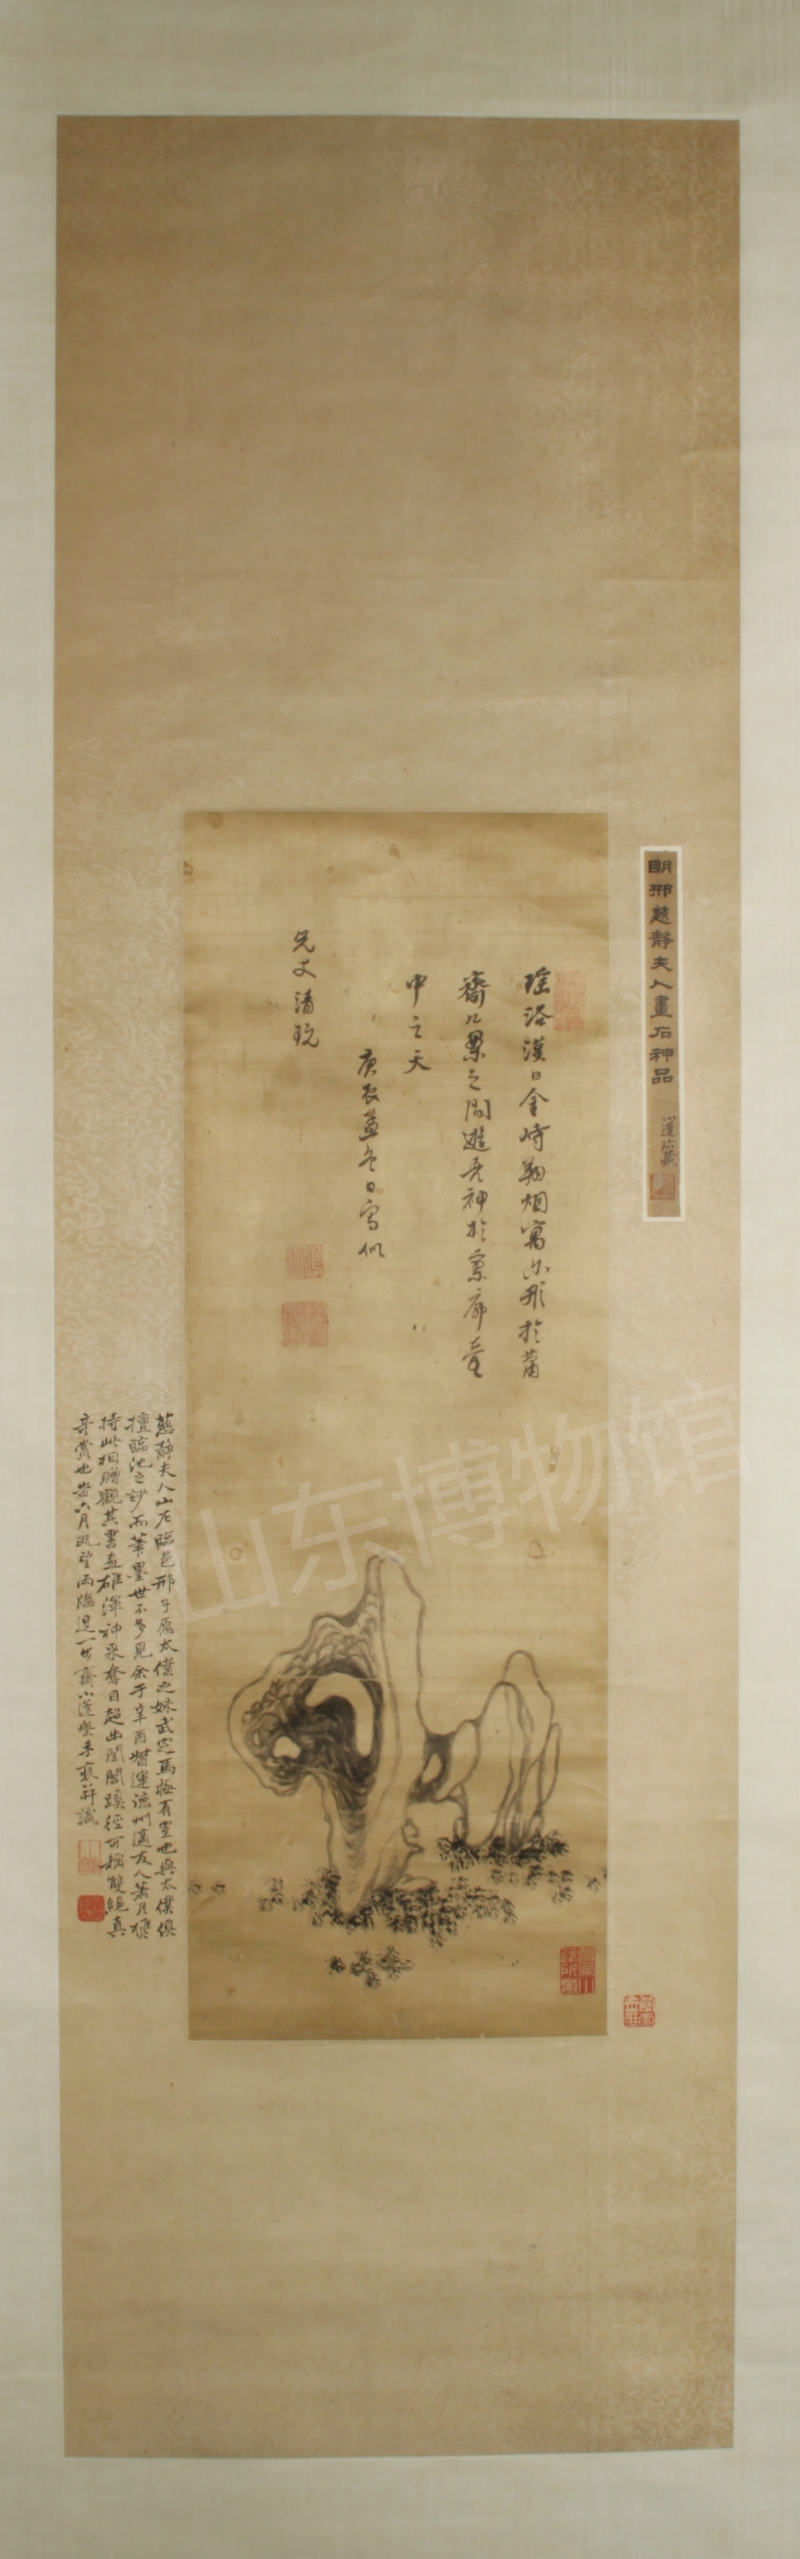 明邢慈靜夫人畫石神品
蓮珍藏
瑤浴漢日金崎翔烟寓
形於蕭
齋几案之間遊吾神於寥廓壺
中之天
庚辰
冬日寫似
兄丈清玩
慈靜夫人山左臨邑邢子愿太僕之妹武定馬拯有室也與太僕俱
擅臨池之妙而筆墨世不多見余于辛酉
運
州適友人蕭月樵
持此相贈觀其書畫雄渾神采奪目超出閨閣蹊徑可稱雙絕真
奇賞也
六月既望雨牕
一
齋小蓬
手裏并識
山东博物馆